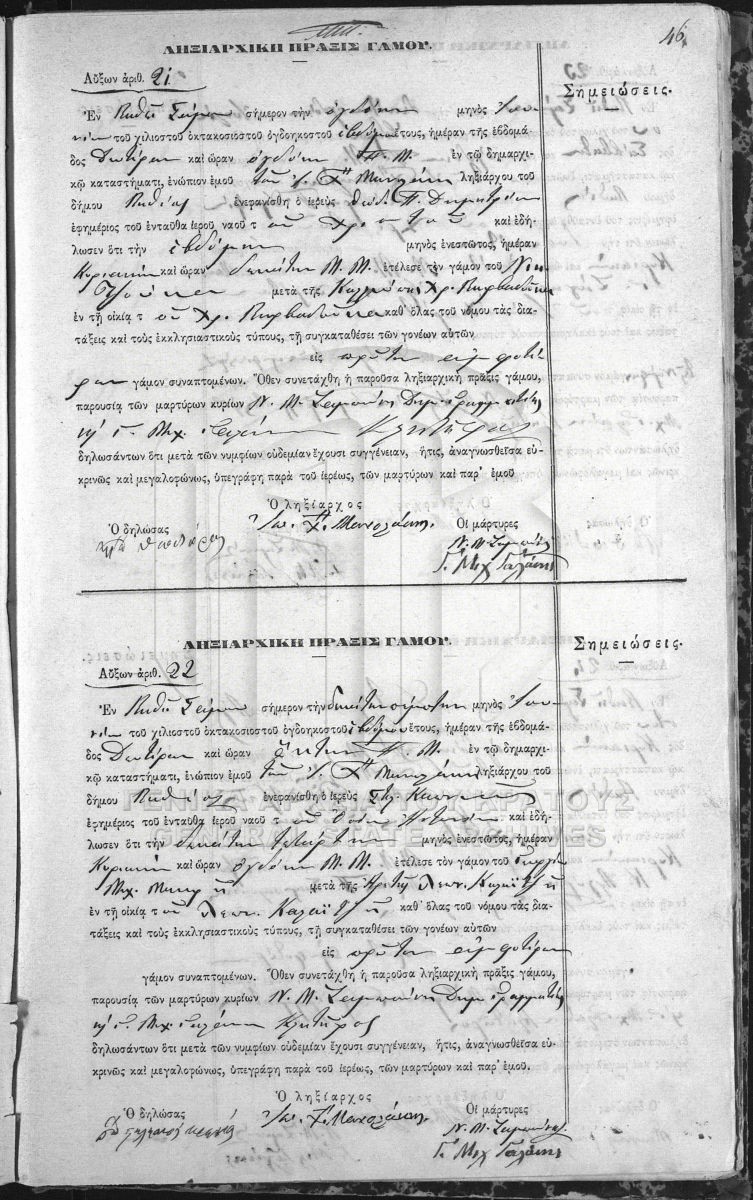 46
ΛΗΞΙΑΡΧΙΚΗ ΠΡΑΞΙΣ ΓΑΜΟΥ.
Σημειώσεις.
Αὔξων ἀριθ. 21
Ἐν σήμερον τὴν ὀγδόην μηνὸς Ἰου-
νίου τοῦ χιλιοστοῦ ὀκτακοσιοστοῦ ὀγδοηκοστοῦ ἑβδόμου ἔτους, ἡμέραν τῆς ἑβδομά-
δος Δευτέραν καὶ ὥραν ὀγδόην Π. Μ. ἐν τῷ δημαρχι-
κῷ καταστήματι, ἐνώπιον ἐμοῦ τοῦ Ἰ. Χ" Μανωλάκη ληξιάρχου τοῦ
δήμου ἐνεφανίσθη ὁ ἱερεὺς Θεόδ. Π. Δημητρίου
ἐφημέριος τοῦ ἐνταῦθα ἱεροῦ ναοῦ τοῦ Χριστοῦ καὶ ἐδή-
λωσεν ὅτι τὴν ἑβδόμην μηνὸς ἐνεστῶτος, ἡμέραν
Κυριακὴν καὶ ὥραν δεκάτην Μ. Μ. ἐτέλεσε τὸν γάμον τοῦ Νικ.
μετὰ τῆς Καλλιόπης Χρ.
ἐν τῇ οἰκίᾳ τοῦ Χρ. καθ' ὅλας τοῦ νόμου τὰς δια-
τάξεις καὶ τοὺς ἐκκλησιαστικοὺς τύπους, τῇ συγκαταθέσει τῶν γονέων αὐτῶν
εἰς πρῶτον ἀμφοτέ-
ρων γάμον συναπτομένων. Ὅθεν συνετάχθη ἡ παροῦσα ληξιαρχικὴ πρᾶξις γάμου,
παρουσίᾳ τῶν μαρτύρων κυρίων Ν. Μ. Δημ. Γραμματέως
κ' Γ. Μιχ. Γαλάνη Κλητῆρος
δηλωσάντων ὅτι μετὰ τῶν νυμφίων οὐδεμίαν ἔχουσι συγγένειαν, ἥτις, ἀναγνωσθεῖσα εὐ-
κρινῶς καὶ μεγαλοφώνως, ὑπεγράφη παρὰ τοῦ ἱερέως, τῶν μαρτύρων καὶ παρ' ἐμοῦ
Ὁ ληξίαρχος
Ὁ δηλώσας Ἰω. Χ" Μανωλάκης Οἱ μάρτυρες
Ν. Μ.
Γ. Μιχ Γαλάνης
ΛΗΞΙΑΡΧΙΚΗ ΠΡΑΞΙΣ ΓΑΜΟΥ.
Σημειώσεις.
Αὔξων ἀριθ. 22
Ἐν σήμερον τὴν δεκάτην πέμπτην μηνὸς Ἰου-
νίου τοῦ χιλιοστοῦ ὀκτακοσιοστοῦ ὀγδοηκοστοῦ ἑβδόμου ἔτους, ἡμέραν τῆς ἑβδομά-
δος Δευτέραν καὶ ὥραν ἕκτην Π. Μ. ἐν τῷ δημαρχι-
κῷ καταστήματι, ἐνώπιον ἐμοῦ τοῦ Ἰ. Χ" Μανωλάκη ληξιάρχου τοῦ
δήμου ἐνεφανίσθη ὁ ἱερεὺς
ΓΕΝΙΚΑ ΑΡΧΕΙΑ ΤΟΥ ΚΡΑΤΟΥΣ
ἐφημέριος τοῦ ἐνταῦθα ἱεροῦ ναοῦ τοῦ καὶ ἐδή-
GENERAL STATE ARCHIVES
λωσεν ὅτι τὴν δεκάτην τετάρτην μηνὸς ἐνεστῶτος, ἡμέραν
Κυριακὴν καὶ ὥραν ὀγδόην Μ. Μ. ἐτέλεσε τὸν γάμον τοῦ
Μιχ. μετὰ τῆς
ἐν τῇ οἰκίᾳ τοῦ καθ' ὅλας τοῦ νόμου τὰς δια-
τάξεις καὶ τοὺς ἐκκλησιαστικοὺς τύπους, τῇ συγκαταθέσει τῶν γονέων αὐτῶν
εἰς πρῶτον ἀμφοτέρων
γάμον συναπτομένων. Ὅθεν συνετάχθη ἡ παροῦσα ληξιαρχικὴ πρᾶξις γάμου,
παρουσίᾳ τῶν μαρτύρων κυρίων Ν. Μ. Δημ. Γραμματέως
κ' Γ. Μιχ Γαλάνη Κλητῆρος
δηλωσάντων ὅτι μετὰ τῶν νυμφίων οὐδεμίαν ἔχουσι συγγένειαν, ἥτις, ἀναγνωσθεῖσα εὐ-
κρινῶς καὶ μεγαλοφώνως, ὑπεγράφη παρὰ τοῦ ἱερέως, τῶν μαρτύρων καὶ παρ' ἐμοῦ.
Ὁ ληξίαρχος
Ὁ δηλώσας Ἰω. Χ" Μανωλάκης Οἱ μάρτυρες
Ν. Μ.
Γ. Μιχ Γαλάνης